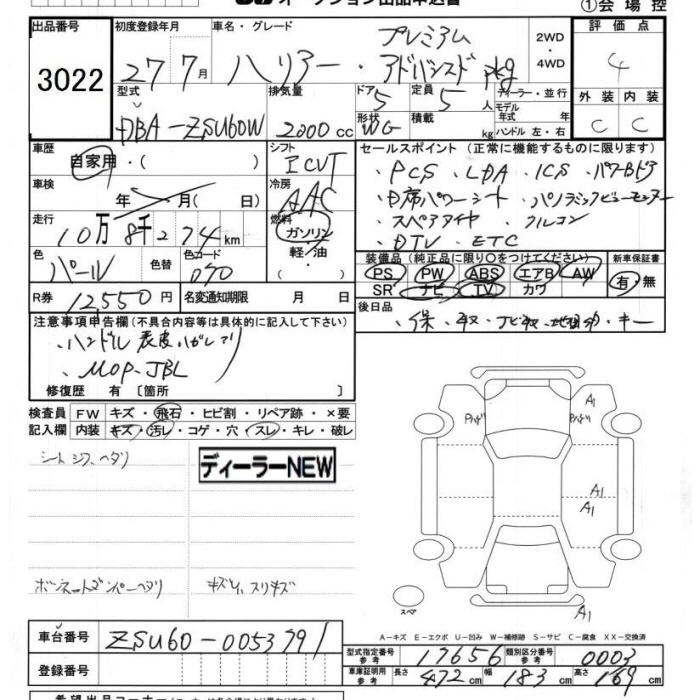 オークション出品申込書
①会場控
出品番号 初度登録年月 車名・グレード 評価点
3022 27 7月 ハリアー・プレミアム アドバンスドpkg 2WD・4WD 4
型式 排気量 ドア 5 定員 5人 ディーラー・並行 外装 内装
DBA-ZSU60W 2000cc 形状 WG 積載 kg モデル年式 年 ハンドル 左・右 C C
車歴 シフト セールスポイント (正常に機能するものに限ります)
自家用・( ) ICVT ・PCS ・LDA ・ICS ・パワーBドア
車検 年 月( 日) 冷房 AAC
・D席パワーシート ・パノラミックビューモニター
走行 10万8千274km 燃料 ガソリン 軽・油 ・( )
・スペアタイヤ ・クルコン
・DTV ・ETC
色 パール 色替 色コード 070
装備品 (純正品に限り○をつけてください) 新車保証書
PS PW ABS エアB AW 有・無
SR ナビ TV カワ
R券 12,550円 名変通知期限 月 日
後日品
・保・取・ナビ取・地図・キー
注意事項申告欄 (不具合内容等は具体的に記入して下さい)
・ハンドル表皮ハガレアリ
・MOP-JBL
修復歴 有 〔箇所 〕
検査員 FW キズ・飛石・ヒビ割・リペア跡・×要
記入欄 内装 キズ・汚レ・コゲ・穴・スレ・キレ・破レ
シートシワ、ヘタリ
ディーラーNEW
A1
A1
A1
スペア
A1
A-キズ E-エクボ U-凹み W-補修跡 S-サビ C-腐食 XX-交換済
車台番号 ZSU60-0053791
型式指定番号 参考 17656 類別区分番号 参考 0003
登録番号
車庫証明用 参考 長さ 472cm 幅 183cm 高さ 169cm